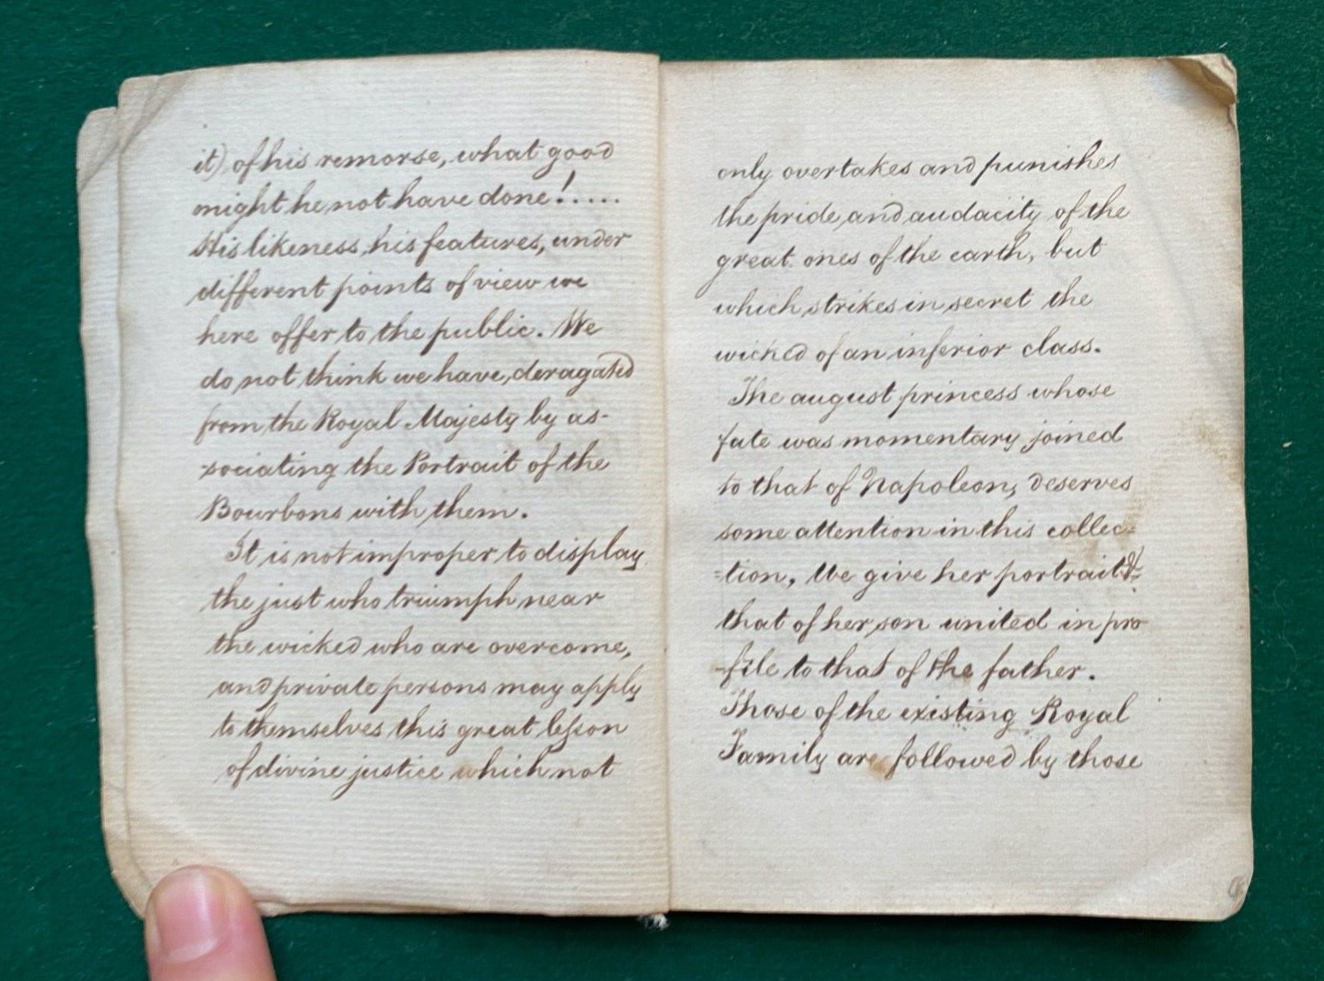 it) of his remorse, what good
might he not have done!.....
His likeness, his features, under
different points of view we
here offer to the public. We
do not think we have, deragated
from the Royal Majesty by as-
sociating the Portrait of the
Bourbons with them.
It is not improper to display
the just who triumph near
the wicked who are overcome,
and private persons may apply
to themselves this great leſson
of divine justice which not
only overtakes and punishes
the pride and audacity of the
great ones of the earth, but
which strikes in secret the
wicked of an inferior class.
The august princess whose
fate was momentary joined
to that of Napoleon, deserves
some attention in this collec=
=tion, We give her portrait &
that of her son united in pro
-file to that of the father.
Those of the existing Royal
Family are followed by those